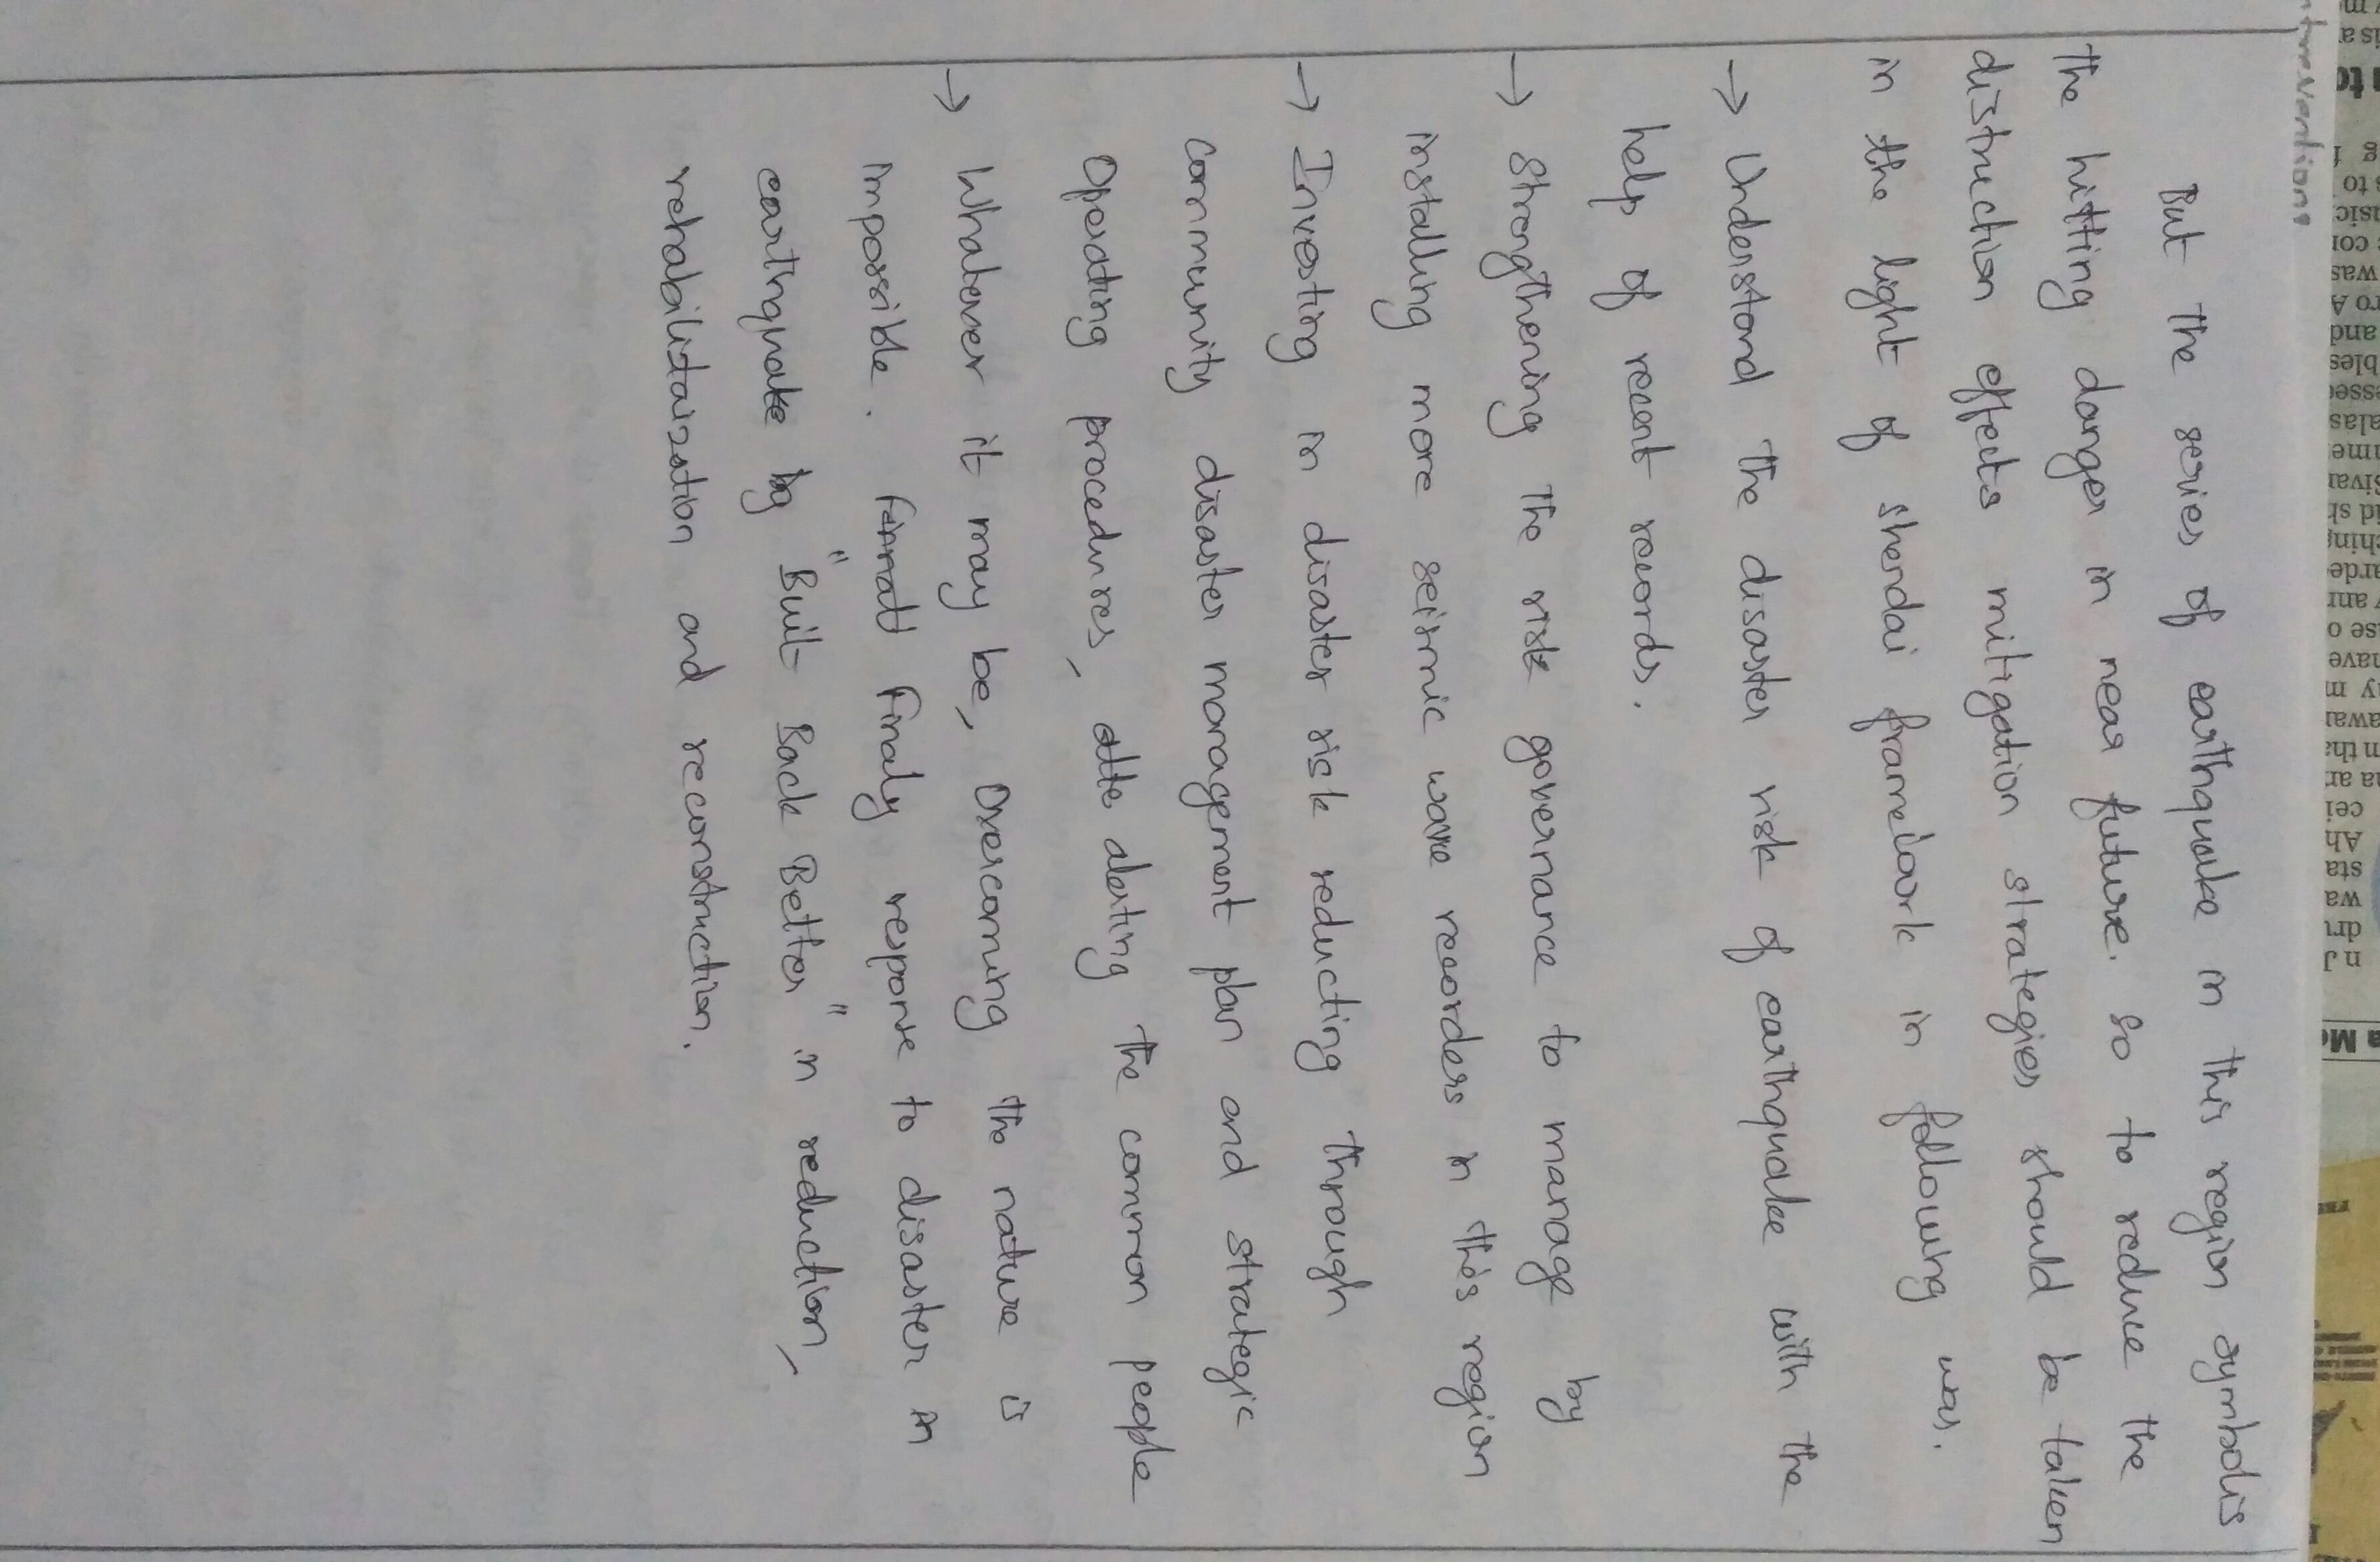 interventions
But the series of earthquake in this region symbolis
the hitting danger in near future. so to reduce the
distruction effects mitigation strategies should be taken
in the light of shendai framework in following was.
→ Understand the disaster risk of earthquake with the
help of recent records.
→ strengthening the risk governance to manage by
installing more seismic wave recorders in this region
→ Investing in disaster risk reducting through
community disaster management plan and strategic
Operating procedures, alerting the common people
→ Whatever it may be, Overcoming the nature is
impossible. Finaly response to disaster in
earthquake by "Buit Back Better" in reduction,
rehabilitaization and reconstruction.